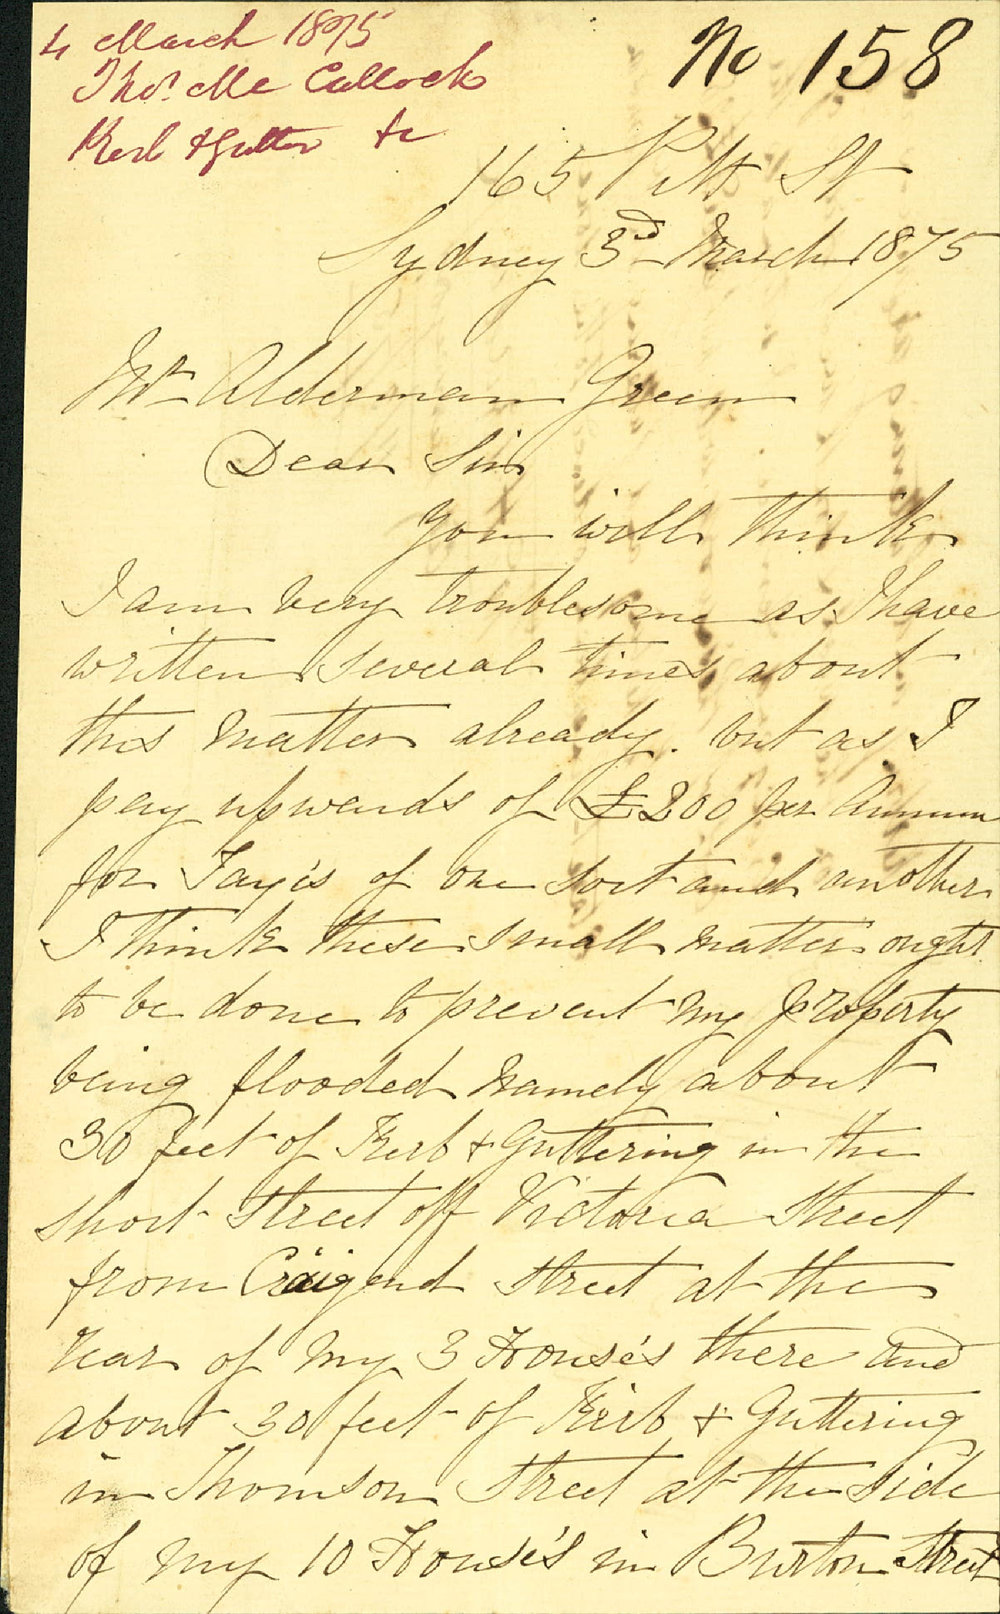 4 March 1875
Thos. Mc Cullock
Kerb & Gutter &c
No 158
165 Pitt St
Sydney 3rd March 1875
Mr Alderman Green
Dear Sir
you will think
I am very troublesome as I have
written several times about
this matter already. but as I
pay upwards of £200 per Annum
for Tax's of one sort and another
I think these small matters ought
to be done to prevent my property
being flooded namely about
30 feet of Kerb & Guttering in the
short street off Victoria Street
from Craigend Street at the
rear of my 3 House's there and
about 30 feet of Kerb & Guttering
in Thomson Street at the side
of my 10 House's in Burton Street